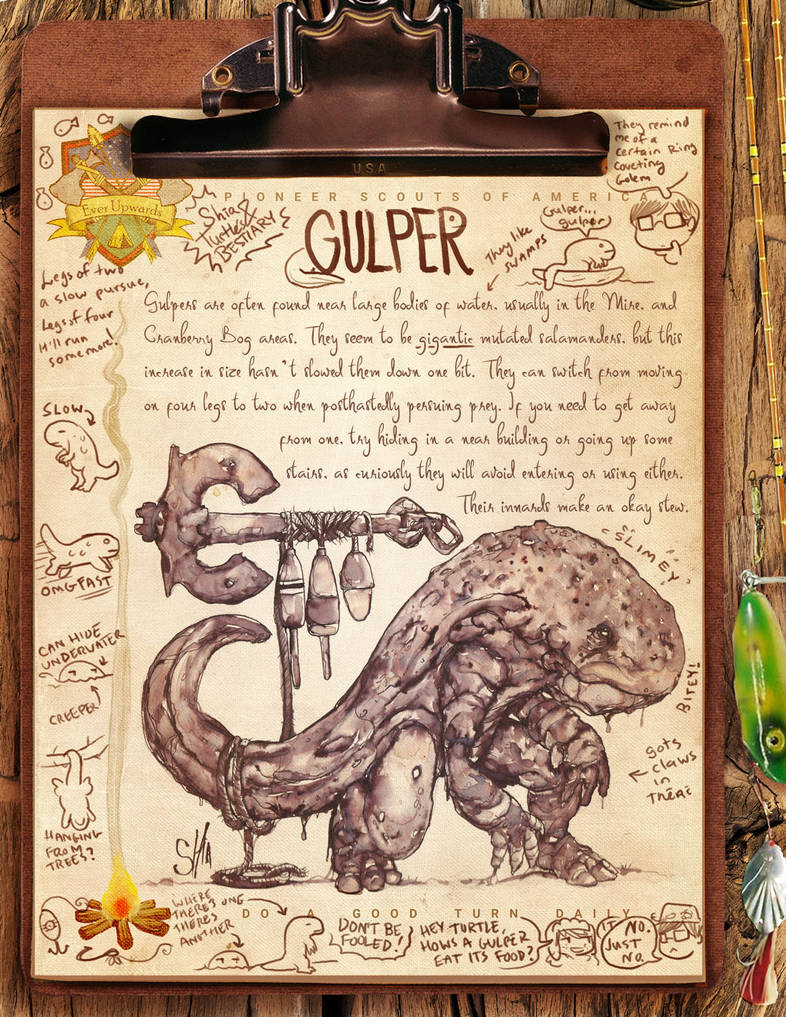 USA
PIONEER SCOUTS OF AMERICA
Ever Upwards
Shia &
Turtle's
BESTIARY
GULPER
They like
SWAMPS
Gulper...
gulper
They remind
me of a
certain Ring
Coveting
Golem
Legs of two
a slow pursue,
Legs of four
it'll run
some more!
Gulpers are often found near large bodies of water, usually in the Mire, and
Cranberry Bog areas. They seem to be gigantic mutated salamanders, but this
increase in size hasn't slowed them down one bit. They can switch from moving
on four legs to two when posthastedly persuing prey. If you need to get away
from one, try hiding in a near building or going up some
stairs, as curiously they will avoid entering or using either.
Their innards make an okay stew.
SLOW
OMG FAST
CAN HIDE
UNDERWATER
CREEPER
HANGING
FROM
TREES?
SLIMEY
BITEY!
gots
claws
in
THERE
SHIA
WHERE
THERE'S ONE
THERES
ANOTHER
DO A GOOD TURN DAILY
DON'T BE
FOOLED!
HEY TURTLE,
HOWS A GULPER
EAT ITS FOOD?
NO.
JUST
NO.